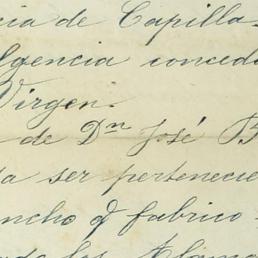 cia de Capilla
lgencia conced
Virgen.
de Dn José B
a ser pertenecie
ancho q fabrico